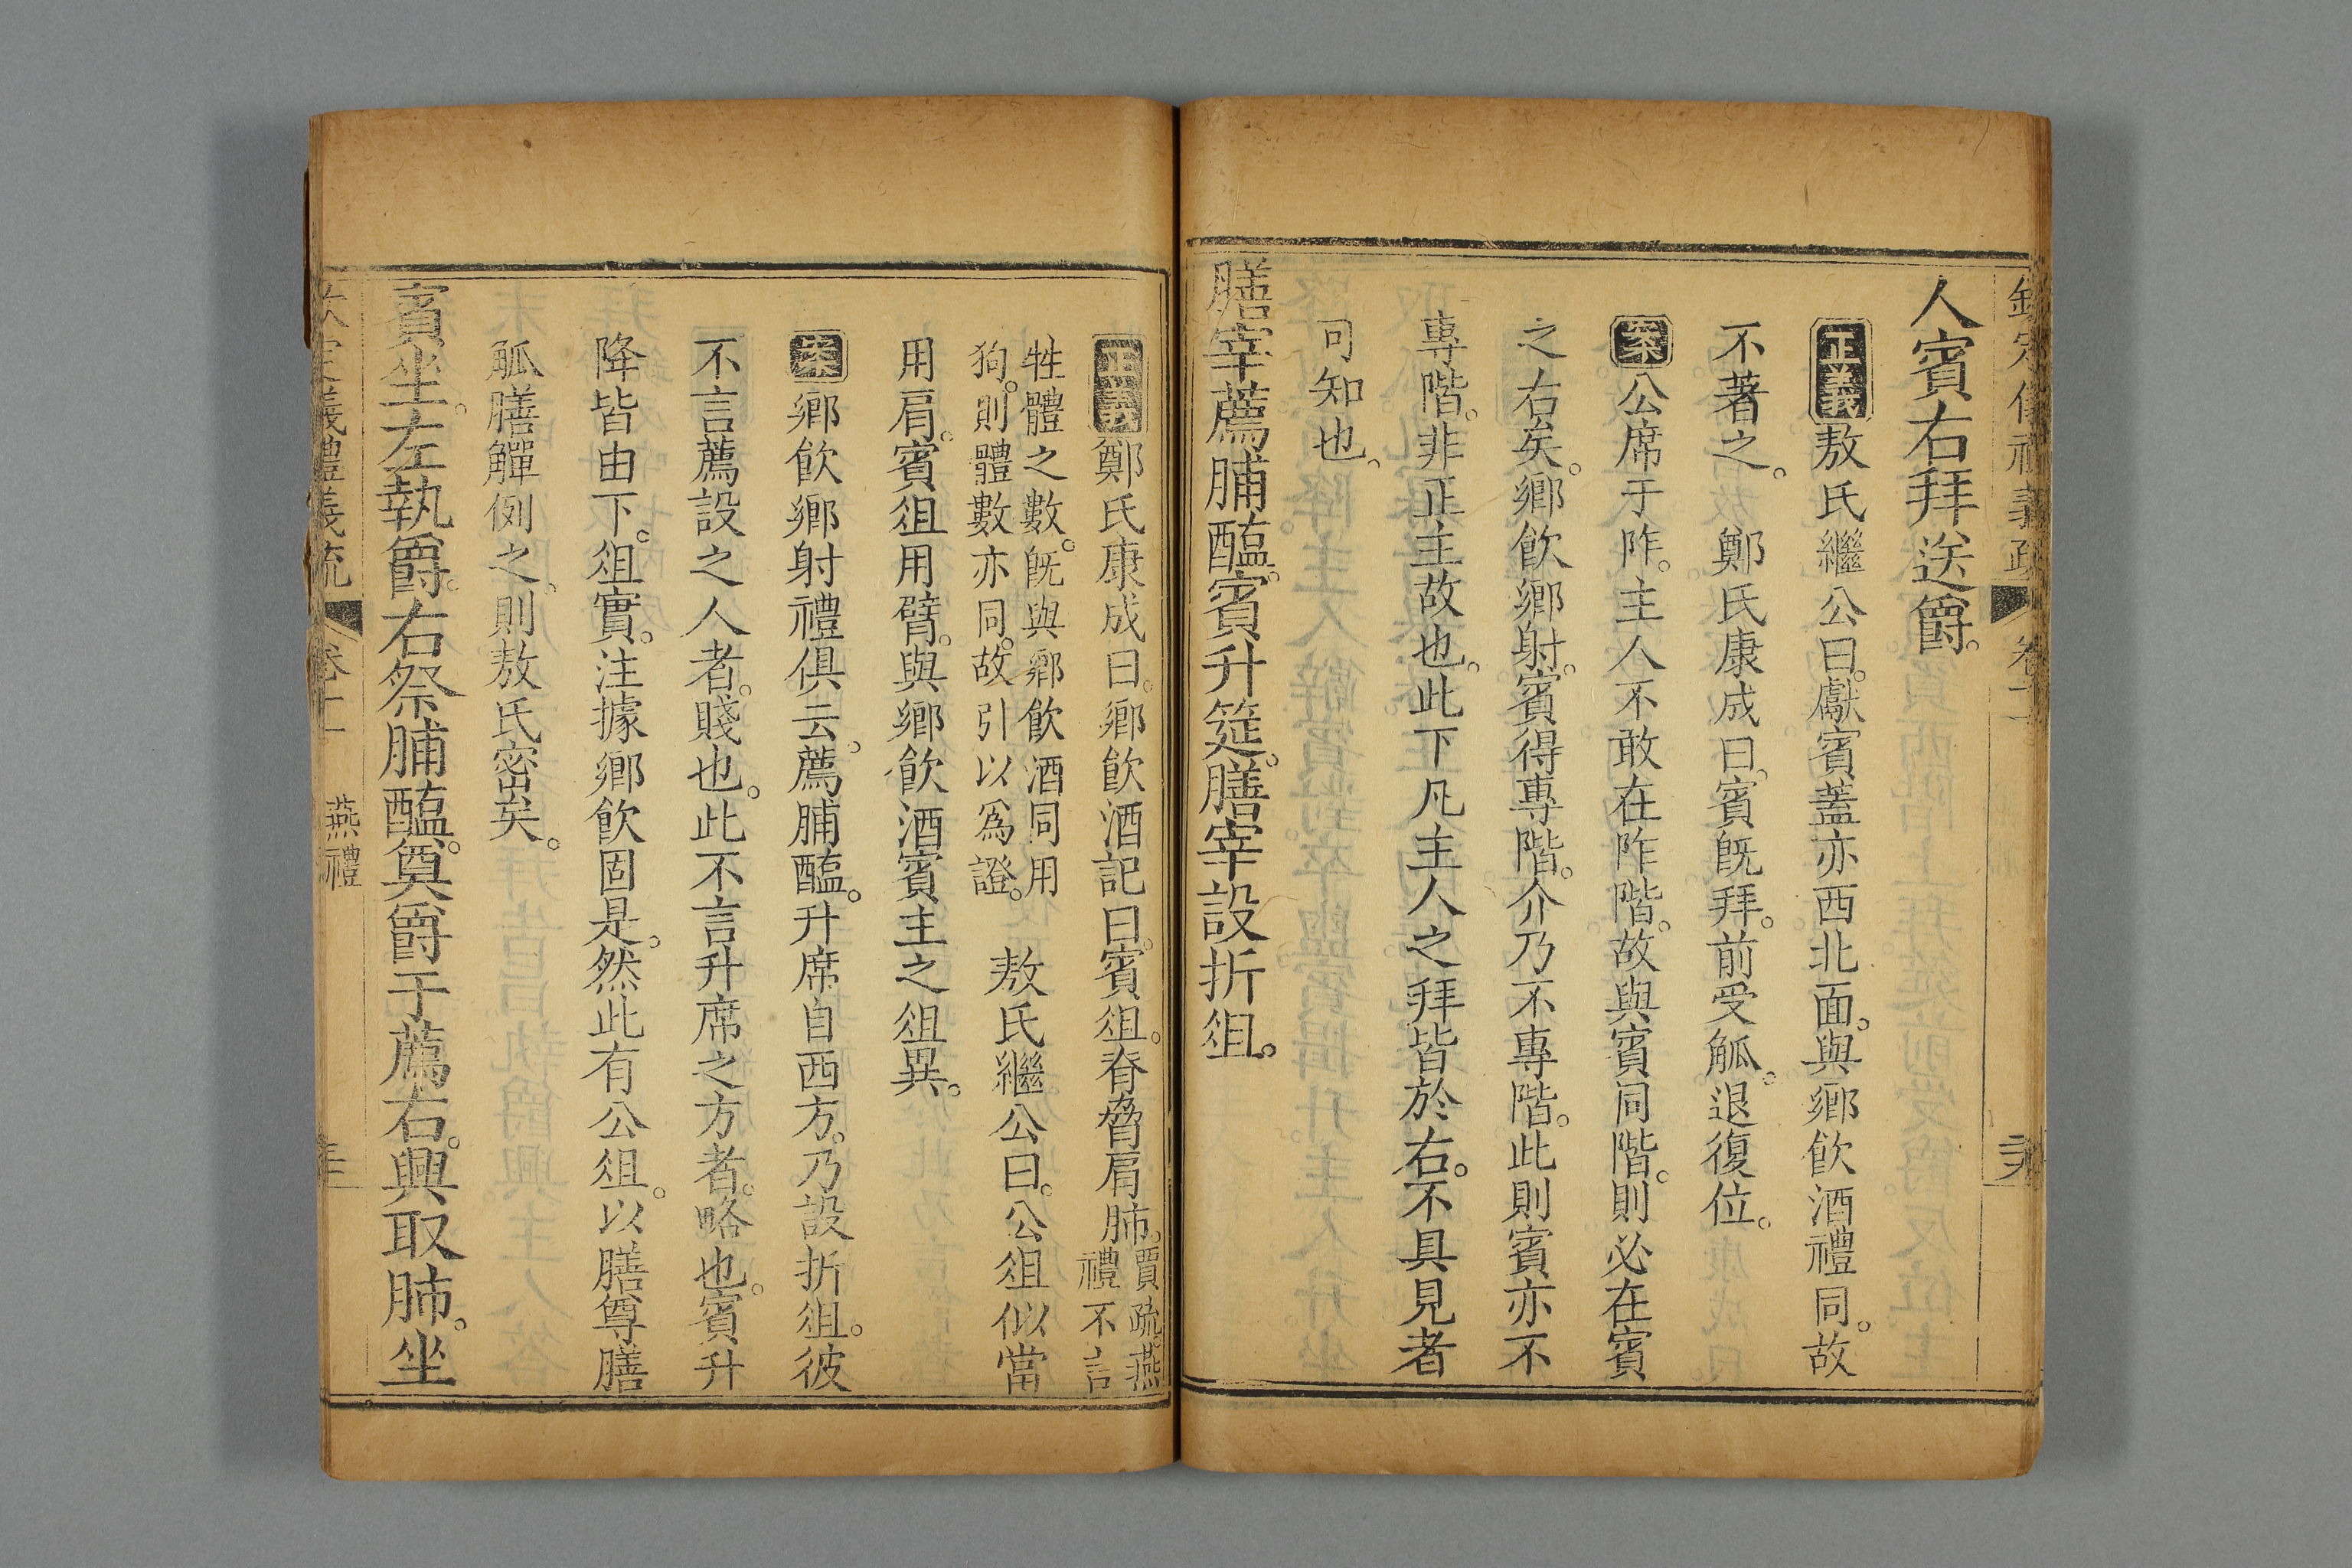 人賓右拜送爵。
正義敖氏繼公曰。獻賓蓋亦西北面。與鄉飲酒禮同。故
不著之。鄭氏康成曰。賓旣拜。前受觚。退復位。
案公席于阼。主人不敢在阼階。故與賓同階。則必在賓
之右矣。鄉飲鄉射。賓得專階。介乃不專階。此則賓亦不
專階。非正主故也。此下凡主人之拜皆於右。不具見者
可知也。
膳宰薦脯醢。賓升筵。膳宰設折俎。
正義鄭氏康成曰。鄉飲酒記曰。賓俎。脊脅肩肺。賈疏。燕禮不言
牲體之數。旣與鄉飲酒同用狗。則體數亦同。故引以爲證。敖氏繼公曰。公俎似當
用肩。賓俎用臂。與鄉飲酒賓主之俎異。
案鄉飲鄉射禮俱云。薦脯醢。升席自西方。乃設折俎。彼
不言薦設之人者。賤也。此不言升席之方者。略也。賓升
降皆由下。俎實。注據鄉飲固是。然此有公俎。以膳尊膳
觚膳觶例之。則敖氏密矣。
賓坐。左執爵。右祭脯醢。奠爵于薦右。興取肺。坐
義禮義疏 卷十一 燕禮